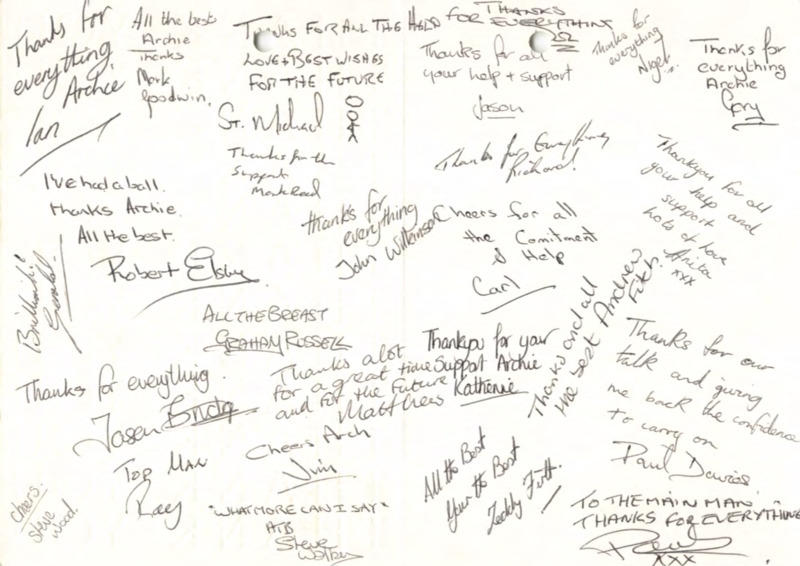 Thanks for
everything
Archie
Ian
All the best
Archie
Thanks
Mark
Goodwin.
THANKS FOR ALL THE HELP
LOVE + BEST WISHES
FOR THE FUTURE
ST. Michael
THANKS
FOR EVERYTHING
Thanks for all
your help + support
Jason
Thanks for
everything
Nigel.
Thanks for
everything
Archie
Gary
Thanks for the
Support
Mark Read
Thanks for Everything
Richard!
Thankyou for all
your help and
support
lots of love
Anita
xxx
I've had a ball.
thanks Archie.
All the best.
Robert Elsby
thanks for
everything
John Wilkinson
Cheers for all
the Comitment
& Help
Carl
Brilliant!
ALL THE BREAST
GRAHAM RUSSELL
Thanks and all
the best Andrew
Thanks for everything.
Jason
Thanks a lot
for a great time
and for the Future
Matthew
Thankyou for your
Support Archie
Katherine
Thanks for our
talk and giving
me back the confidence
to carry on
Paul Davies
TOP MAN
Ray
Cheers Arch
"WHAT MORE CAN I SAY"
ATB
Steve
All the Best
Your the Best
Teddy Firth.
cheers.
Steve
Wood.
TO THE MAIN MAN
THANKS FOR EVERYTHING
xxx